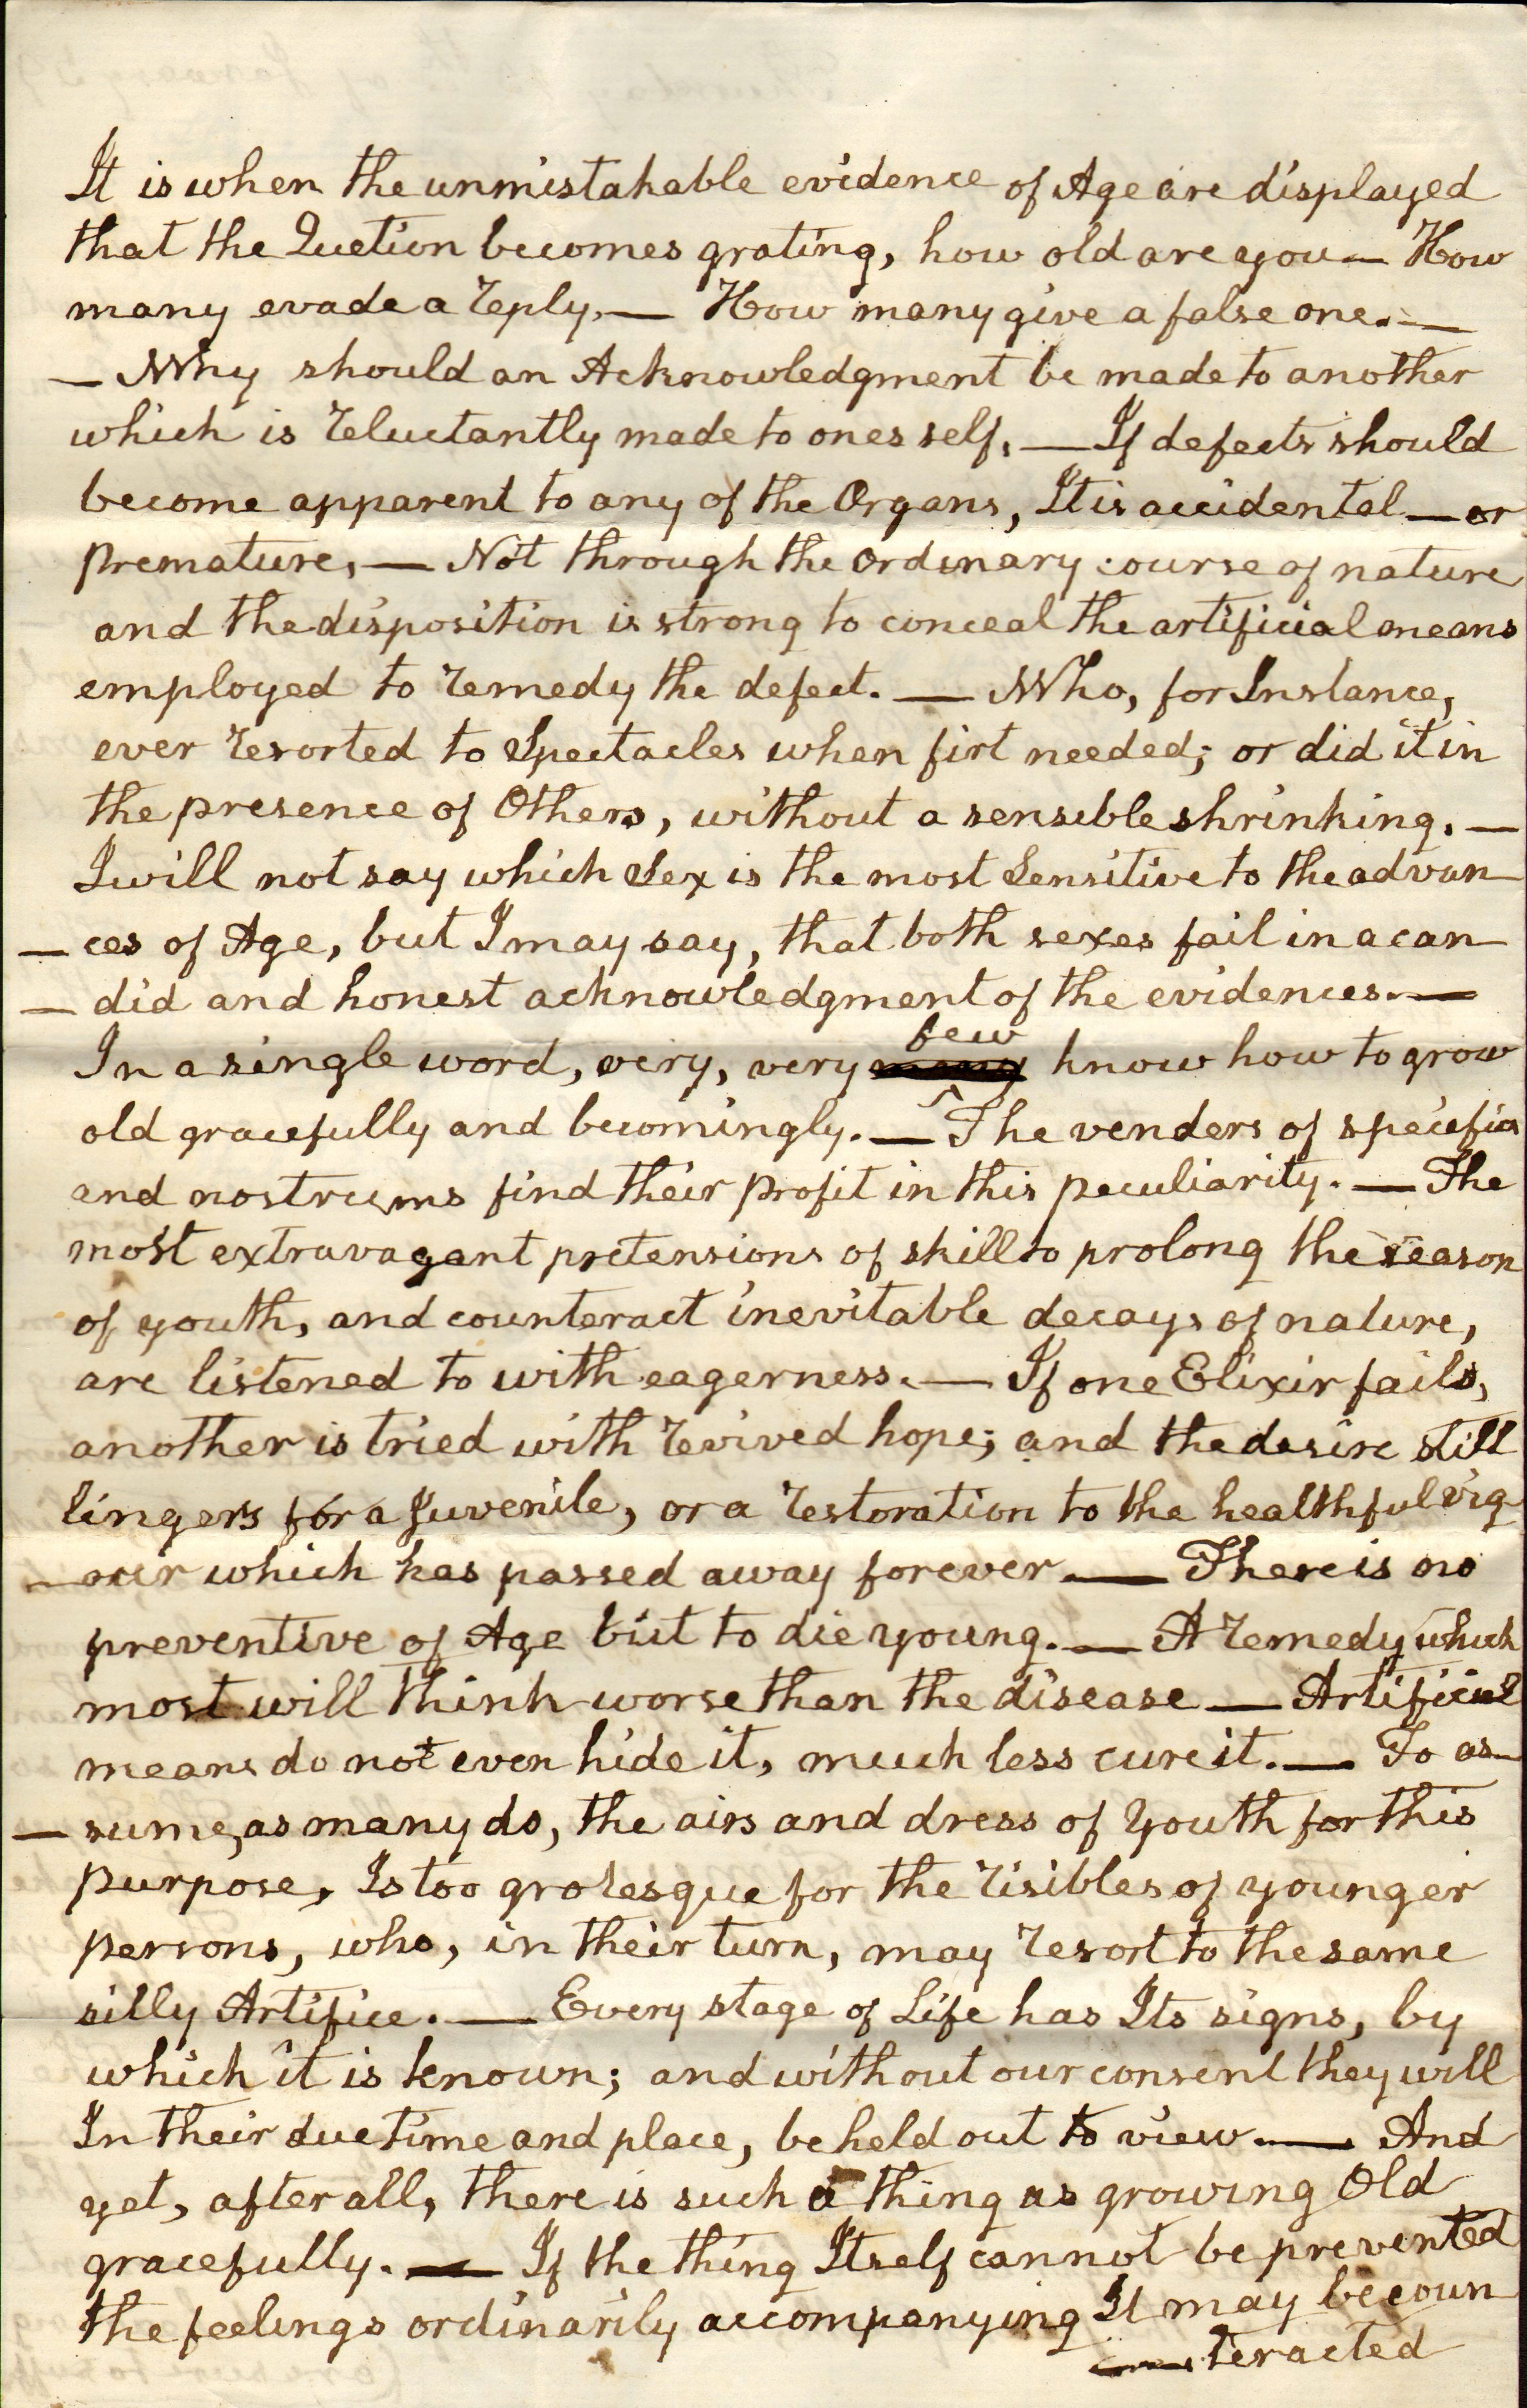 It is when the unmistakable evidence of Age are displayed
that the Quetion becomes grating, how old are you — How
many evade a reply. — How many give a false one. —
— Why should an Acknowledgment be made to another
which is reluctantly made to ones self. — If defects should
become apparent to any of the Organs, It is accidental — or
premature, — Not through the ordinary course of nature
and the disposition is strong to conceal the artificial means
employed to remedy the defect. — Who, for Instance,
ever resorted to Spectacles when firt needed; or did it in
the presence of Others, without a sensible shrinking. —
I will not say which Sex is the most Sensitive to the advan
— ces of Age, but I may say, that both sexes fail in a can
— did and honest acknowledgment of the evidences. —
In a single word, very, very few know how to grow
old gracefully and becomingly. — The venders of specifics
and nostrums find their profit in this peculiarity. — The
most extravagant pretensions of skill to prolong the season
of youth, and counteract inevitable decays of nature,
are listened to with eagerness. — If one Elixir fails,
another is tried with revived hope; and the desire still
lingers for a Juvenile, or a restoration to the healthful vig
— our which has passed away forever — There is no
preventive of Age but to die young. — A remedy which
most will think worse than the disease — Artificial
means do not even hide it, much less cure it. — To as—
— sume, as many do, the airs and dress of Youth for this
purpose, Is too grotesque for the risibles of younger
persons, who, in their turn, may resort to the same
silly Artifice. — Every stage of Life has Its signs, by
which it is known; and without our consent they will
In their due time and place, be held out to view. — And
yet, after all, there is such a thing as growing Old
gracefully. — If the thing Itself cannot be prevented
the feelings ordinarily accompanying It may be coun
— teracted